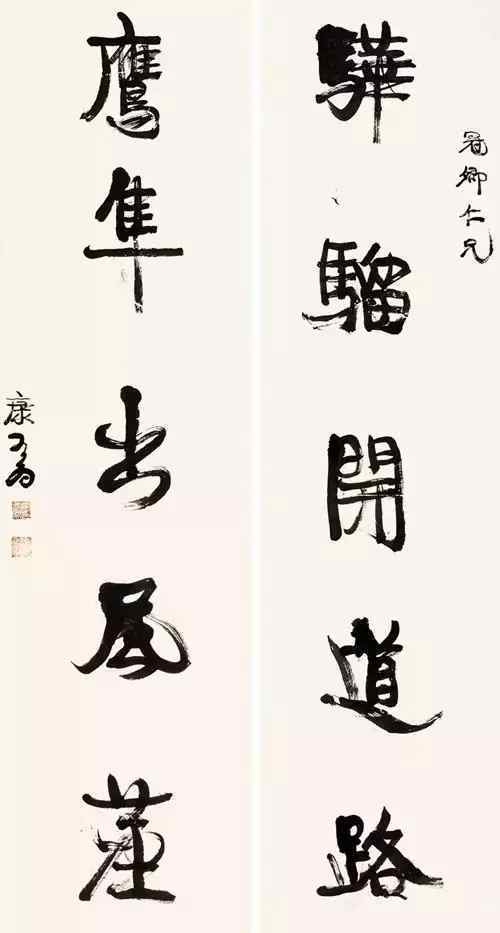 卿仁兄
驊騮開道路
鷹隼出風塵
康有為